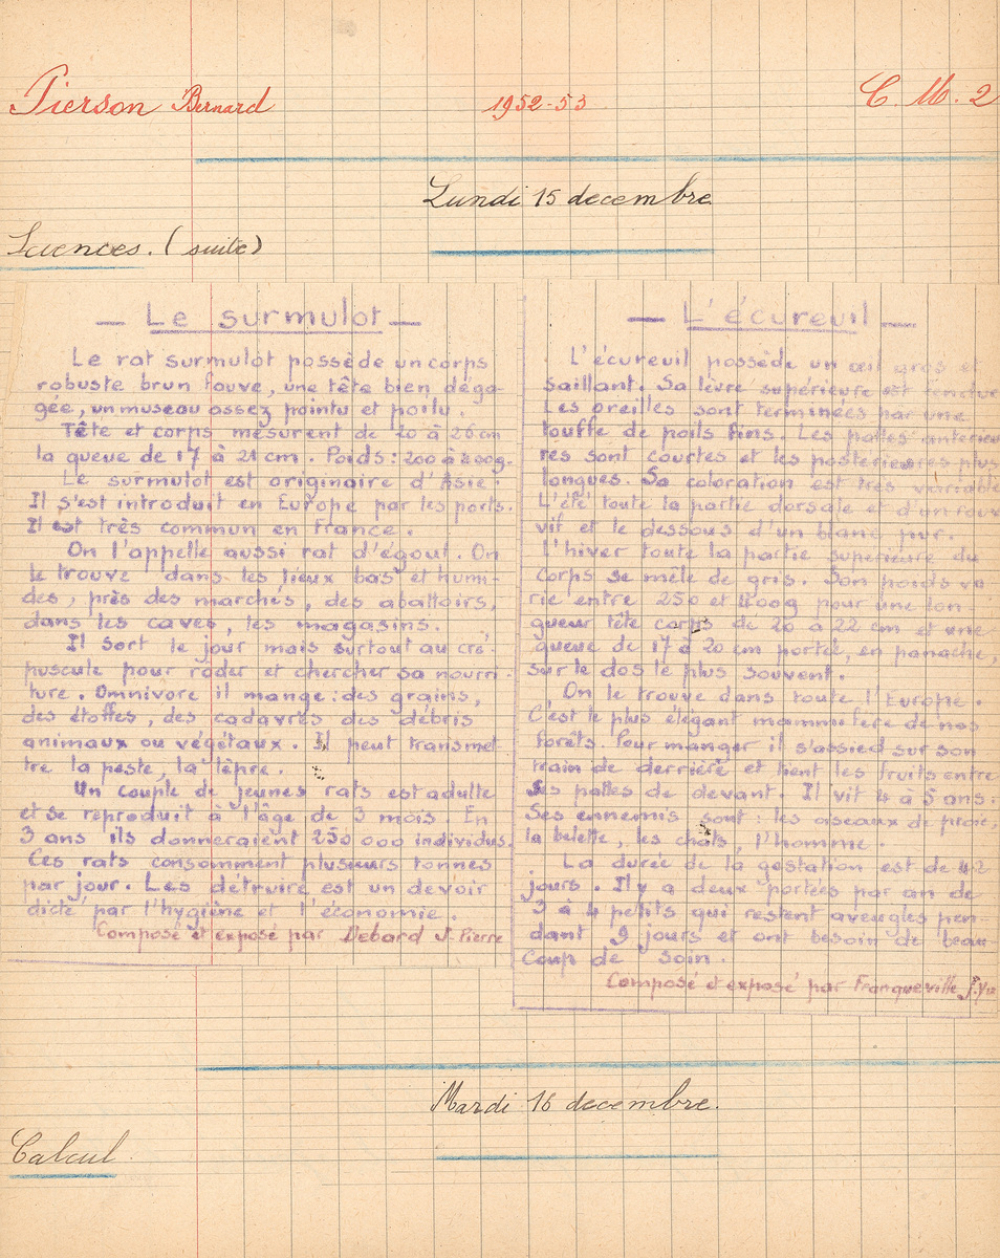 Pierson Bernard 1952-53 C. M. 2
Lundi 15 decembre
Sciences. (suite)
— Le surmulot —
Le rat surmulot possède un corps
robuste brun fauve, une tête bien déga-
gée, un museau assez pointu et poilu.
Tête et corps mesurent de 20 à 26 cm
la queue de 17 à 21 cm. Poids : 200 à 400g.
Le surmulot est originaire d'Asie.
Il s'est introduit en Europe par les ports.
Il est très commun en France.
On l'appelle aussi rat d'égout. On
le trouve dans les lieux bas et humi-
des, près des marchés, des abattoirs,
dans les caves, les magasins.
Il sort le jour mais surtout au cré-
puscule pour roder et chercher sa nourri-
ture. Omnivore il mange : des grains,
des étoffes, des cadavres des débris
animaux ou végétaux. Il peut transmet
tre la peste, la lèpre.
Un couple de jeunes rats est adulte
et se reproduit à l'âge de 3 mois. En
3 ans ils donneraient 250 000 individus.
Ces rats consomment plusieurs tonnes
par jour. Les détruire est un devoir
dicté par l'hygiène et l'économie.
Composé et exposé par Debard J. Pierre
— L'écureuil —
L'écureuil possède un œil gros et
saillant. Sa lèvre supérieure est fendue
Les oreilles sont terminées par une
touffe de poils fins. Les pattes antérieu
res sont courtes et les postérieures plus
longues. Sa coloration est très variable
L'été toute la partie dorsale et d'un roux
vif et le dessous d'un blanc pur.
L'hiver toute la partie superieure du
corps se mêle de gris. Son poids va
rie entre 250 et 400g pour une lon
gueur tête corps de 20 à 22 cm et une
queue de 17 à 20 cm portée, en panache,
sur le dos le plus souvent.
On le trouve dans toute l'Europe.
C'est le plus élégant mammifère de nos
forêts. Pour manger il s'assied sur son
train de derrière et tient les fruits entre
ses pattes de devant. Il vit 4 à 5 ans.
Ses ennemis sont : les oiseaux de proie,
la belette, les chats, l'homme.
La durée de la gestation est de 42
jours. Il y a deux portées par an de
3 à 4 petits qui restent aveugles pen-
dant 9 jours et ont besoin de beau
coup de soin.
Composé et exposé par Franqueville J. Yve
Mardi 16 decembre.
Calcul